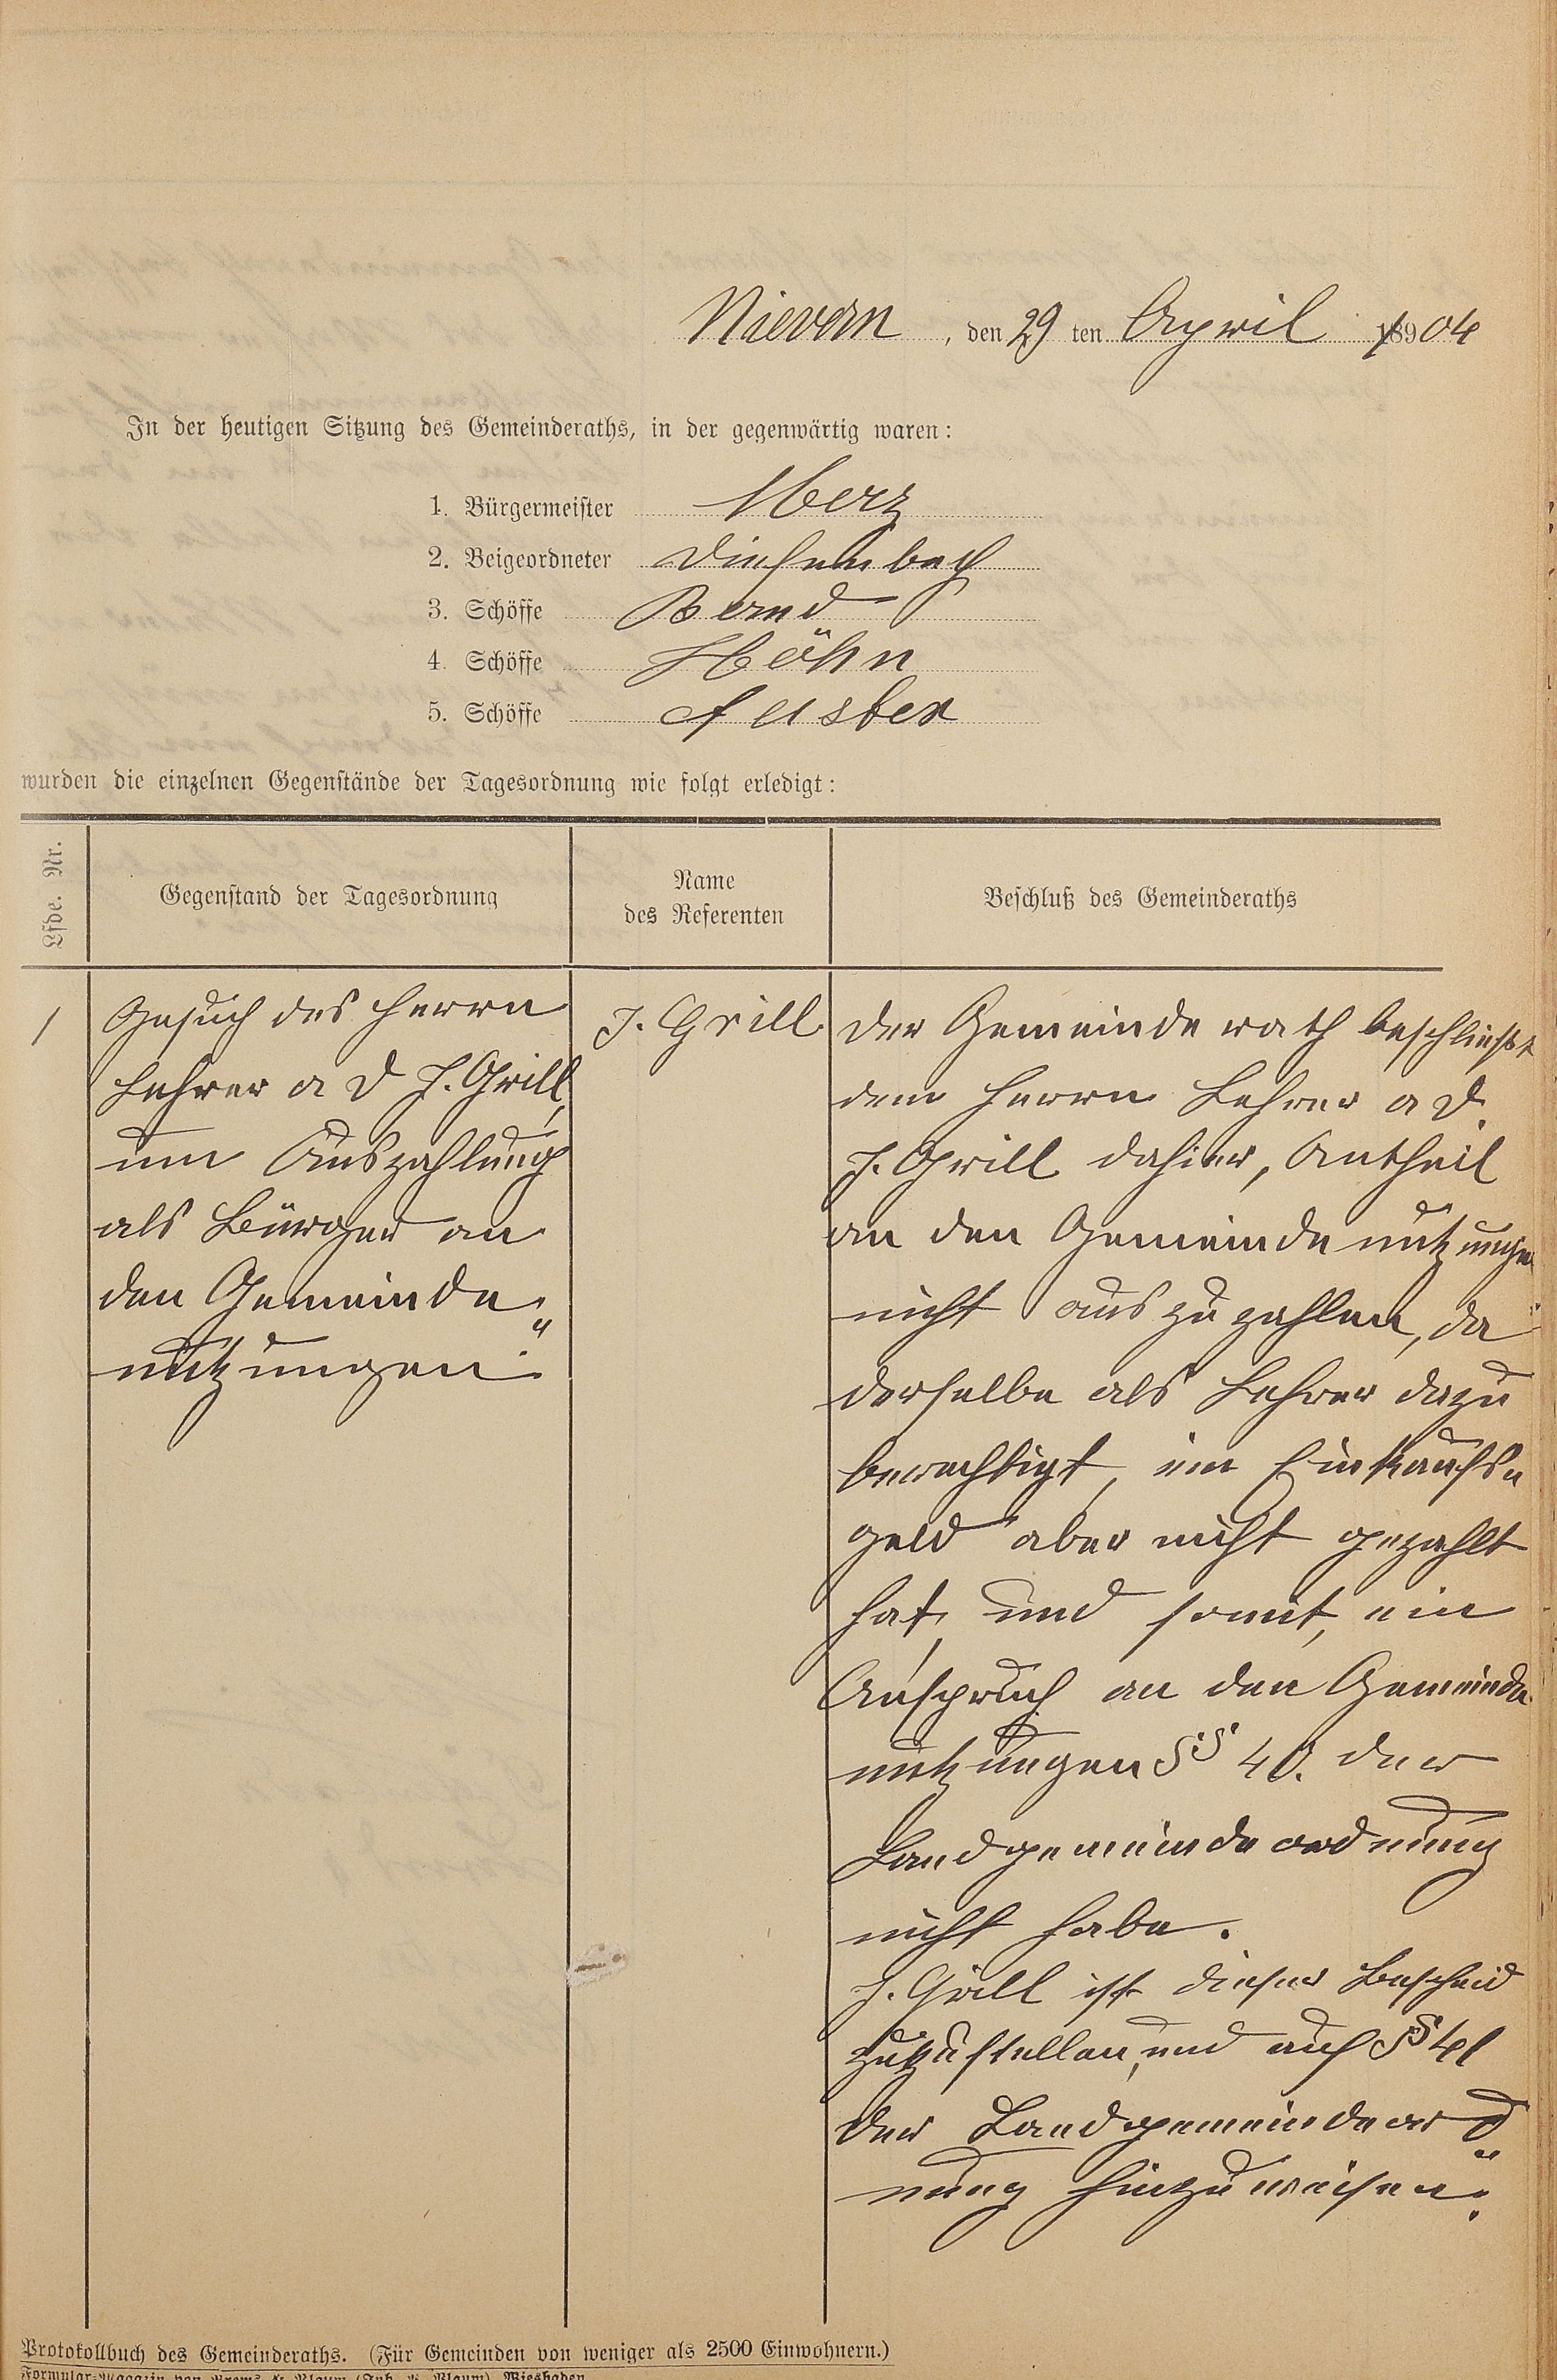 Nievern, den 29 ten April 1904
In der heutigen Sitzung des Gemeinderaths, in der gegenwärtig waren:
1. Bürgermeister Merz
2. Beigeordneter Diefenbach
3. Schöffe Bernd
4. Schöffe Höhn
5. Schöffe
wurden die einzelnen Gegenstände der Tagesordnung wie folgt erledigt:
Lfde. Nr.
Gegenstand der Tagesordnung
Name
des Referenten
Beschluß des Gemeinderaths
1
Gesuch des Herrn
Lehrer a D J. Grill,
um Auszahlung
als Bürger an
den Gemeinde
nutzungen."
J. Grill
Der Gemeinderath beschließt
dem Herrn Lehrer a D.
J. Grill dahier, Antheil
an den Gemeindenutzungen
nicht auszuzahlen, da
derselbe als Lehrer dazu
berechtigt, ein Einkaufs„
geld aber nicht gezahlt
hat, und somit, ein
Anspruch an den Gemeinde
nutzungen §§ 40. der
Landgemeindeordnung
nicht habe.
J. Grill ist dieser Bescheid
zuzustellen, und auf § 41
der Landgemeindeord
nung hinzuweisen."
Protokollbuch des Gemeinderaths. (Für Gemeinden von weniger als 2500 Einwohnern.)
Formular-Magazin von Plaum (Inh. Plaum) Wiesbaden